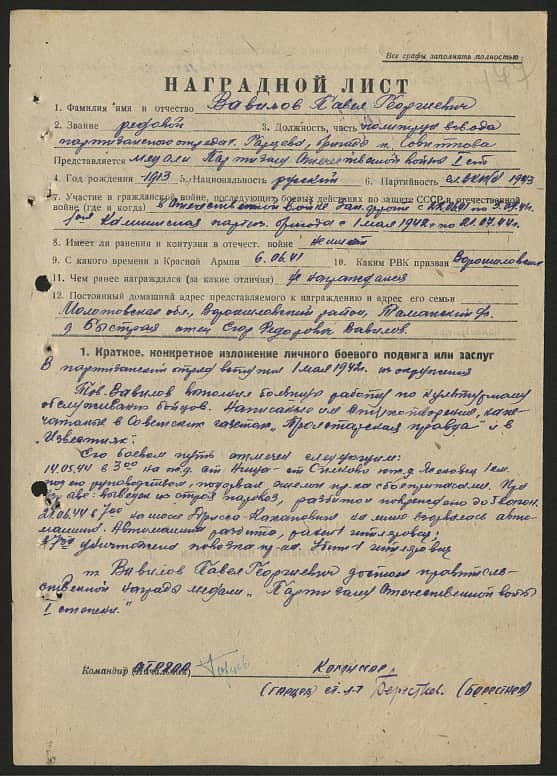 Все графы заполнять полностью
НАГРАДНОЙ ЛИСТ
1. Фамилия имя и отчество Вавилов Павел Георгиевич
2. Звание рядовой 3. Должность, часть политрук взвода
партизанского отряда т. Гарцева, бригада т.
Представляется медали Партизану Отечественной войны I ст
4. Год рождения 1913 5. Национальность русский 6. Партийность 1943
7. Участие в гражданской войне, последующих боевых действиях по защите СССР и отечественной
войне (где и когда) в Отечественной войне Зап. фронте с 22.06.41 по
Калининская парт. бригада с 1 мая 1942 г по 21.07.44 г
8. Имеет ли ранения и контузии в отечест. войне не имеет
9. С какого времени в Красной Армии 6.06.41 10. Каким РВК призван Ворошиловским
11. Чем ранее награждался (за какие отличия) не награждался
12. Постоянный домашний адрес представляемого к награждению и адрес его семьи
Молотовская обл, Ворошиловский район,
д Быстрая отец Федорович Вавилов.
1. Краткое, конкретное изложение личного боевого подвига или заслуг
В партизанский отряд вступил 1 мая 1942 г. из окружения
Тов. Вавилов выполнял большую работу по культурному
обслуживанию бойцов. Написанные им стихотворения, напе-
чатаны в Советских газетах „Пролетарская правда" и в
„Известиях".
Его боевой путь отмечен следующим:
14.05.44 в 3 00 на ж.д. ст Нища - ст
под его руководством, подорван эшелон пр-ка с боеприпасами. При
взрыве: выведен из строя паровоз, разбито и повреждено до вагон.
21.06.44 в 7 00 на шоссе на мине взорвалась авто-
машина. Автомашина разбита, ранен 1 гитлеровец;
уничтожена повозка пр-ка. Убит 1 гитлеровец
т. Вавилов Павел Георгиевич достоин правитель-
ственной награды медали „Партизану Отечественной войны
I степени."
Командир (Начальник) отряда Комиссар
(Гарцев) ст. л-т (Берестнев)